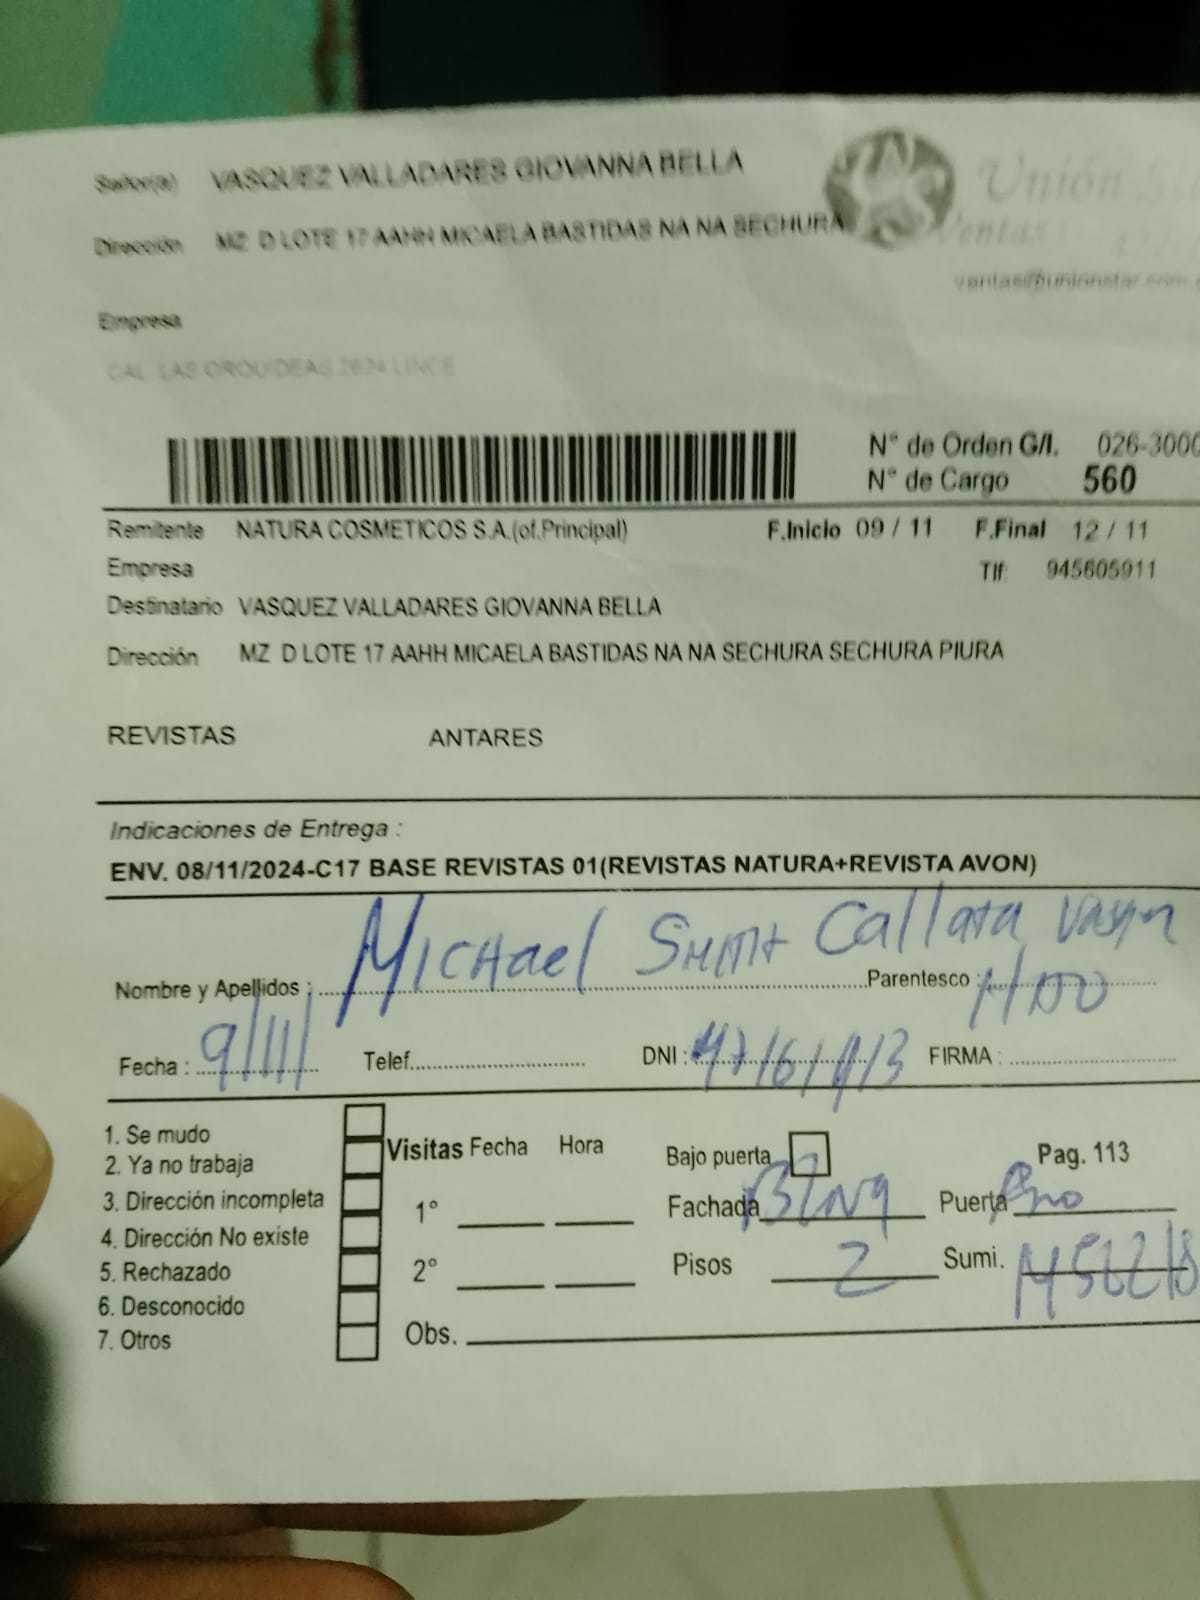 Señor(a) VASQUEZ VALLADARES GIOVANNA BELLA
Dirección MZ D LOTE 17 AAHH MICAELA BASTIDAS NA NA SECHURA
Unión
Ventas
ventas@unionstar.com
Empresa
CAL LAS ORQUIDEAS 2624 LINCE
N° de Orden G/I. 026-3000
N° de Cargo 560
Remitente NATURA COSMETICOS S.A.(of.Principal) F.Inicio 09 / 11 F.Final 12 / 11
Empresa Tlf: 945605911
Destinatario VASQUEZ VALLADARES GIOVANNA BELLA
Dirección MZ D LOTE 17 AAHH MICAELA BASTIDAS NA NA SECHURA SECHURA PIURA
REVISTAS ANTARES
Indicaciones de Entrega :
ENV. 08/11/2024-C17 BASE REVISTAS 01(REVISTAS NATURA+REVISTA AVON)
Nombre y Apellidos : MICHael Callata Parentesco : HDO
Fecha : 9/11/ Telef. DNI : FIRMA :
1. Se mudo
2. Ya no trabaja
3. Dirección incompleta
4. Dirección No existe
5. Rechazado
6. Desconocido
7. Otros
Visitas Fecha Hora Bajo puerta Pag. 113
1° Fachada Puerta
2° Pisos 2 Sumi.
Obs.